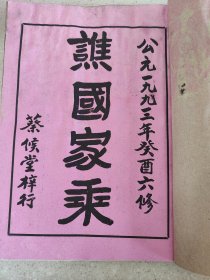 公元一九九三年癸酉六修
譙國家乘
蔡候堂梓行